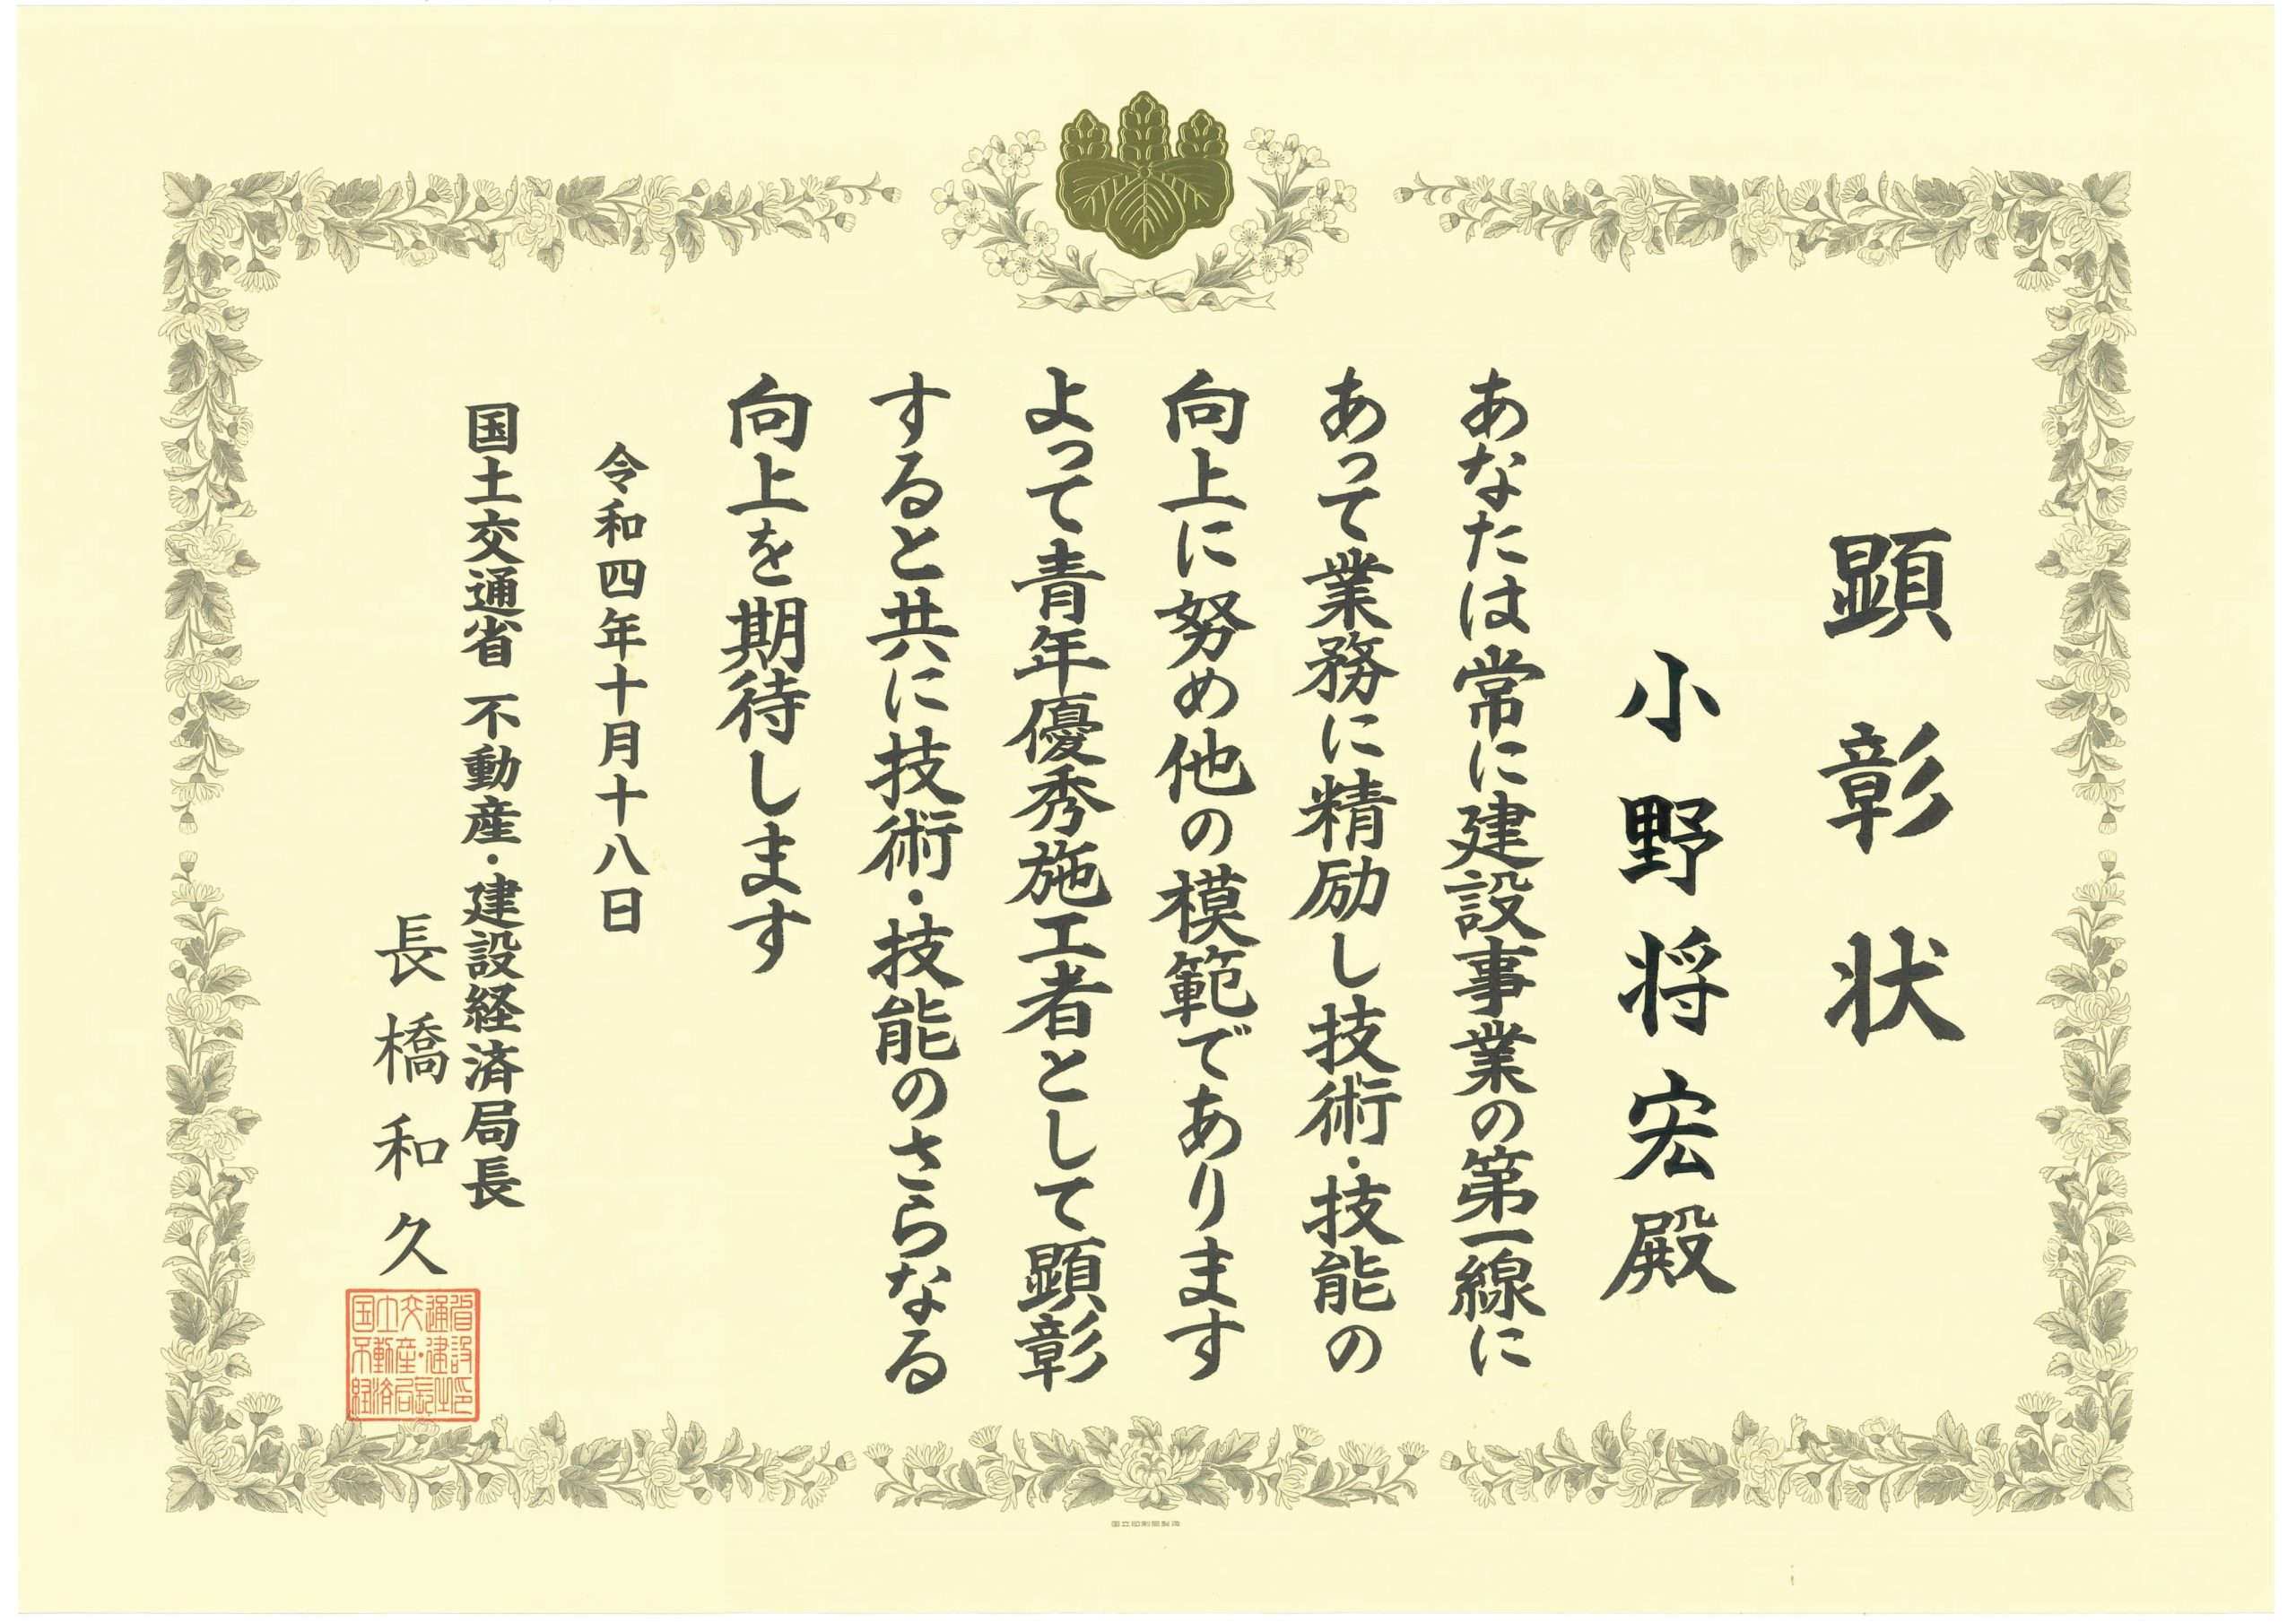 顕彰状
小野将宏殿
あなたは常に建設事業の第一線に
あって業務に精励し技術・技能の
向上に努め他の模範であります
よって青年優秀施工者として顕彰
すると共に技術・技能のさらなる
向上を期待します
令和四年十月十八日
国土交通省 不動産・建設経済局長
長橋和久
国土交通省
不動産・建設
経済局長之印
国立印刷局製造